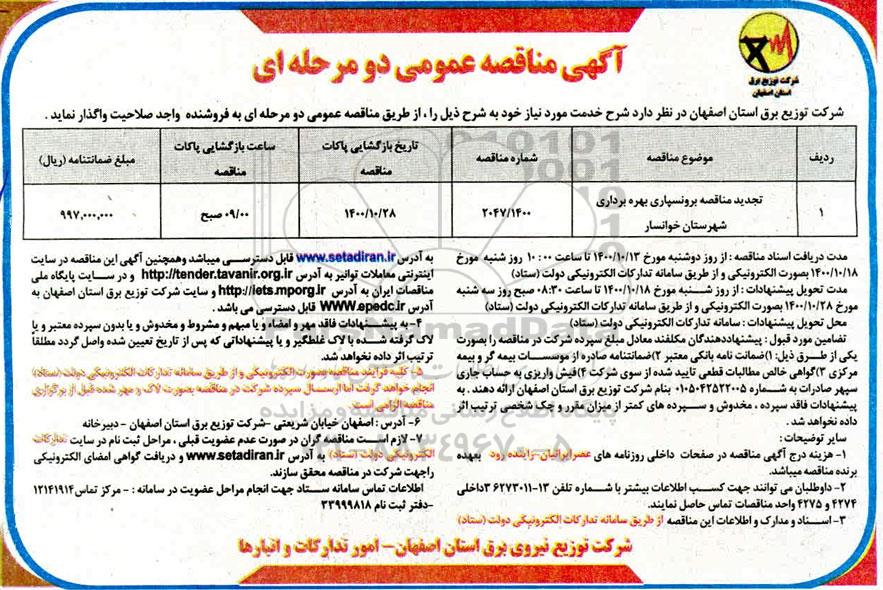 آگهی مناقصه عمومی دو مرحله ای
شرکت توزیع برق
استان اصفهان
شرکت توزیع برق استان اصفهان در نظر دارد شرح خدمت مورد نیاز خود به شرح ذیل را ، از طریق مناقصه عمومی دو مرحله ای به فروشنده واجد صلاحیت واگذار نماید .
ردیف موضوع مناقصه شماره مناقصه تاریخ بازگشایی پاکات مناقصه ساعت بازگشایی پاکات مناقصه مبلغ ضمانتنامه (ریال)
۱ تجدید مناقصه برونسپاری بهره برداری شهرستان خوانسار ۲۰۴۷/۱۴۰۰ ۱۴۰۰/۱۰/۲۸ ۰۹/۰۰ صبح ۹۹۷,۰۰۰,۰۰۰
مدت دریافت اسناد مناقصه : از روز دوشنبه مورخ ۱۴۰۰/۱۰/۱۳ تا ساعت ۱۰:۰۰ روز شنبه مورخ
۱۴۰۰/۱۰/۱۸ بصورت الکترونیکی و از طریق سامانه تدارکات الکترونیکی دولت (ستاد)
مدت تحویل پیشنهادات : از روز شنبه مورخ ۱۴۰۰/۱۰/۱۸ تا ساعت ۰۸:۳۰ صبح روز سه شنبه
مورخ ۱۴۰۰/۱۰/۲۸ بصورت الکترونیکی و از طریق سامانه تدارکات الکترونیکی دولت (ستاد)
محل تحویل پیشنهادات : سامانه تدارکات الکترونیکی دولت (ستاد)
تضامین مورد قبول : پیشنهاددهندگان مکلفند معادل مبلغ سپرده شرکت در مناقصه را بصورت
یکی از طرق ذیل: ۱)ضمانت نامه بانکی معتبر ۲)ضمانتنامه صادره از موسسات بیمه گر و بیمه
مرکزی ۳)گواهی خالص مطالبات قطعی تایید شده از سوی شرکت ۴)فیش واریزی به حساب جاری
سپهر صادرات به شماره ۰۱۰۵۰۴۲۵۲۲۰۰۵ بنام شرکت توزیع برق استان اصفهان ارائه دهند . به
پیشنهادات فاقد سپرده ، مخدوش و سپرده های کمتر از میزان مقرر و چک شخصی ترتیب اثر
داده نخواهد شد .
سایر توضیحات :
۱- هزینه درج آگهی مناقصه در صفحات داخلی روزنامه های عصرایرانیان-زاینده رود بعهده
برنده مناقصه میباشد.
۲- داوطلبان می توانند جهت کسب اطلاعات بیشتر با شماره تلفن ۱۳-۳۶۲۷۳۰۱۱ داخلی
۴۲۷۴ و ۴۲۷۵ واحد مناقصات تماس حاصل نمایند.
۳- اسناد و مدارک و اطلاعات این مناقصه از طریق سامانه تدارکات الکترونیکی دولت (ستاد)
به آدرس www.setadiran.ir قابل دسترسی میباشد وهمچنین آگهی این مناقصه در سایت
اینترنتی معاملات توانیر به آدرس http://tender.tavanir.org.ir و در سایت پایگاه ملی
مناقصات ایران به آدرس http://iets.mporg.ir و سایت شرکت توزیع برق استان اصفهان به
آدرس WWW.epedc.ir قابل دسترسی می باشد .
۴- به پیشنهادات فاقد مهر و امضاء و یا مبهم و مشروط و مخدوش و یا بدون سپرده معتبر و یا
لاک گرفته شده با لاک غلطگیر و یا پیشنهاداتی که پس از تاریخ تعیین شده واصل گردد مطلقا
ترتیب اثر داده نخواهد شد.
۵- کلیه فرایند مناقصه بصورت الکترونیکی و از طریق سامانه تدارکات الکترونیکی دولت (ستاد)
انجام خواهد گرفت اما ارسال سپرده شرکت در مناقصه بصورت لاک و مهر شده قبل از برگزاری
مناقصه الزامی است
۶- آدرس : اصفهان خیابان شریعتی -شرکت توزیع برق استان اصفهان - دبیرخانه
۷- لازم است مناقصه گران در صورت عدم عضویت قبلی ، مراحل ثبت نام در سایت تدارکات
الکترونیکی دولت (ستاد) به آدرس www.setadiran.ir و دریافت گواهی امضای الکترونیکی
راجهت شرکت در مناقصه محقق سازند.
اطلاعات تماس سامانه ستاد جهت انجام مراحل عضویت در سامانه : - مرکز تماس ۱۲۱۴۱۹۱۴
-دفتر ثبت نام ۳۳۹۹۹۸۱۸
شرکت توزیع نیروی برق استان اصفهان- امور تدارکات و انبارها